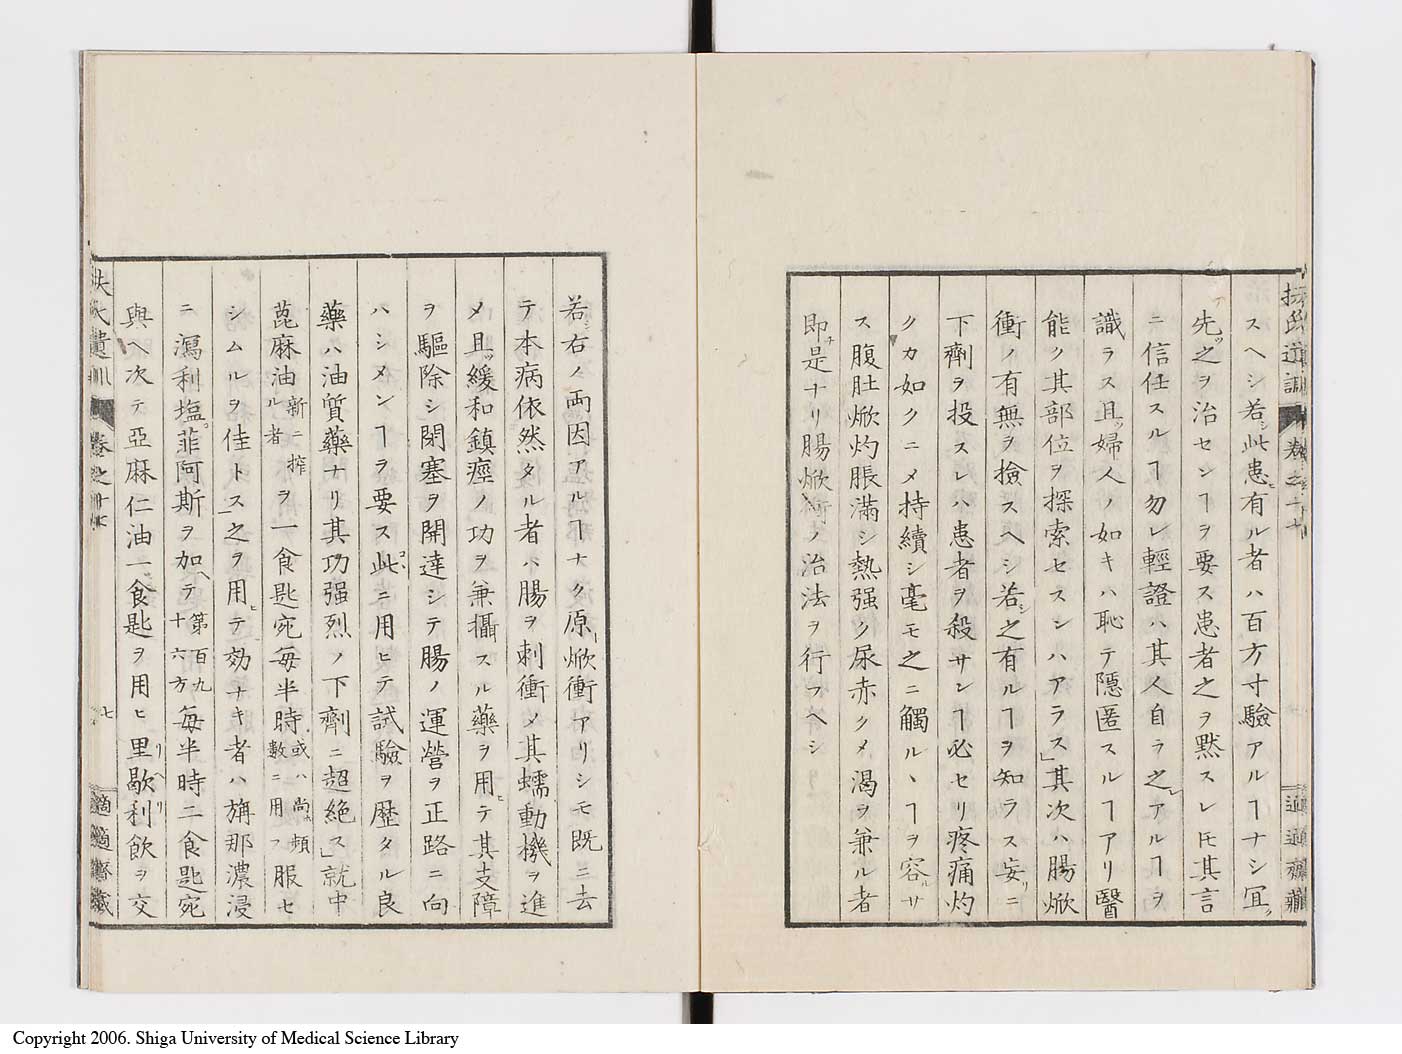 扶氏遺訓 卷之十七 適適齋藏
スヘシ若シ此患ヒ有ル者ハ百方寸驗アルヿナシ冝ク
先ツ之ヲ治センヿヲ要ス患者之ヲ黙スレ𪜈其言
ニ信任スルヿ勿レ輕證ハ其人自ラ之レアルヿヲ
識ラス且ツ婦人ノ如キハ恥テ隱匿スルヿアリ醫
能ク其部位ヲ探索セスンハアラス」其次ハ腸焮
衝ノ有無ヲ撿スヘシ若シ之有ルヿヲ知ラス妄リニ
下劑ヲ投スレハ患者ヲ殺サンヿ必セリ疼痛灼
クカ如クニメ持續シ毫モ之ニ觸ルヽヿヲ容ルサ
ス腹肚焮灼脹滿シ熱强ク尿赤クメ渴ヲ兼ル者
即チ是ナリ腸焮衝ノ治法ヲ行フヘシ
若シ右ノ両因アルヿナク原ト焮衝アリシモ既ニ去
テ本病依然タル者ハ腸ヲ刺衝メ其蠕動機ヲ進
メ且ツ緩和鎮痙ノ功ヲ兼攝スル藥ヲ用ヒテ其支障
ヲ驅除シ閉塞ヲ開達シテ腸ノ運營ヲ正路ニ向
ハシメンヿヲ要ス此コニ用ヒテ試驗ヲ歴タル良
藥ハ油質藥ナリ其功强烈ノ下劑ニ超絶ス」就中
蓖麻油新ニ搾ル者ヲ一食匙宛毎半時或ハ尚ホ頻數ニ用フ服セ
シムルヲ佳トス」之ヲ用ヒテ効ナキ者ハ旃那濃浸
ニ瀉利塩菲阿斯ヲ加ヘテ第百九十六方毎半時二食匙宛
與ヘ次テ亞麻仁油一食匙ヲ用ヒ里歇利飲ヲ交
扶氏遺訓 卷之十七 七 適適齋藏
Copyright 2006. Shiga University of Medical Science Library